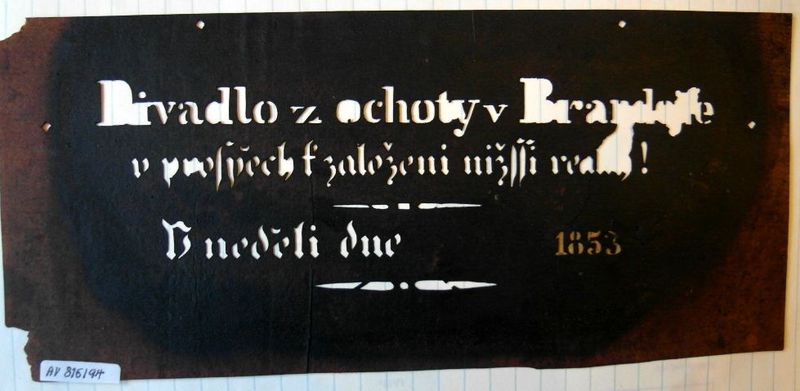 Divadlo z ochoty v Brandeise
v prospěch k založeni nižšſi realky!
V neděli dne 1853
AV 87619A